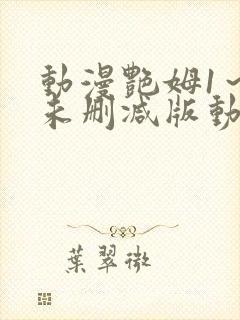 動漫艷姆1～
未刪減版動
葉翠微